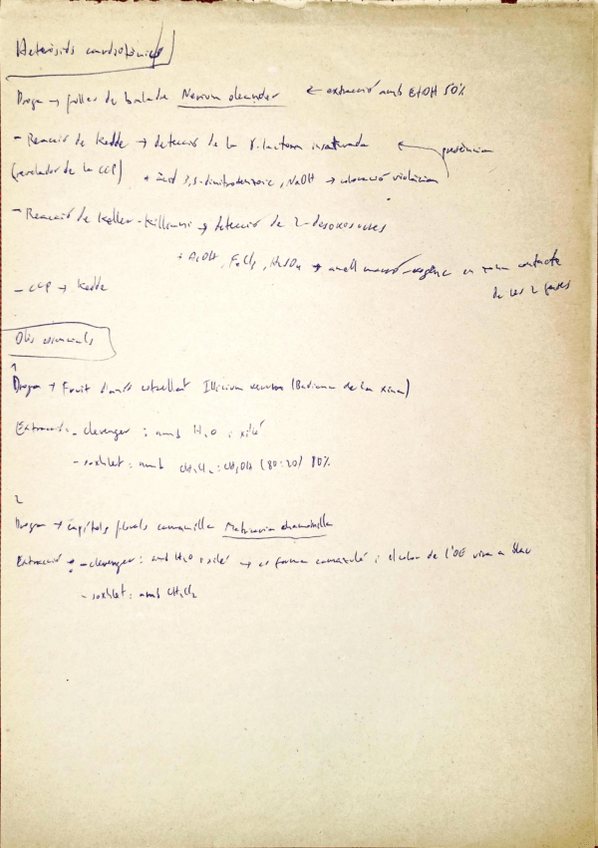 Heteròsids cardiotònics
Droga → fulles de baladre Nerium oleander ← extracció amb EtOH 50%
- Reacció de Kedde → detecció de la γ-lactona insaturada
(revelador de la CCP) • àcid 3,5-dinitrobenzoic, NaOH → coloració violàcia
- Reacció de Keller-Killiani → detecció de 2-desoxioses
: AcOH, FeCl3, H2SO4 → anell marró-vermellós en zona contacte
de les 2 fases
- CCP → Kedde
Olis essencials
1
Droga → Fruit d'anís estrellat Illicium verum (Badiana de la Xina)
Extracció - clevenger : amb H2O i xilè
- soxhlet : amb CH2Cl2 : CH3OH (80:20)
2
Droga → capítols florals camamilla Matricaria chamomilla
Extracció : - clevenger : amb H2O i xilè → es forma camazulè i el color de l'OE vira a blau
- soxhlet : amb CH2Cl2